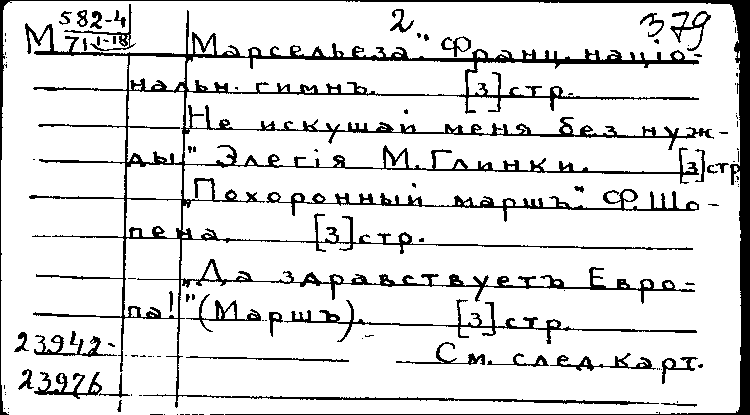 582-4 2 379
М 711-18 „Марсельеза." Франц. націо-
нальн. гимнъ. [3] стр.
„Не искушай меня без нуж-
ды" Элегія М. Глинки. [3] стр
„Похоронный маршъ." Ф. Шо-
пена. [3] стр.
„Да здравствуетъ Евро-
па!" (Маршъ). [3] стр.
23942- См. след. карт.
23976